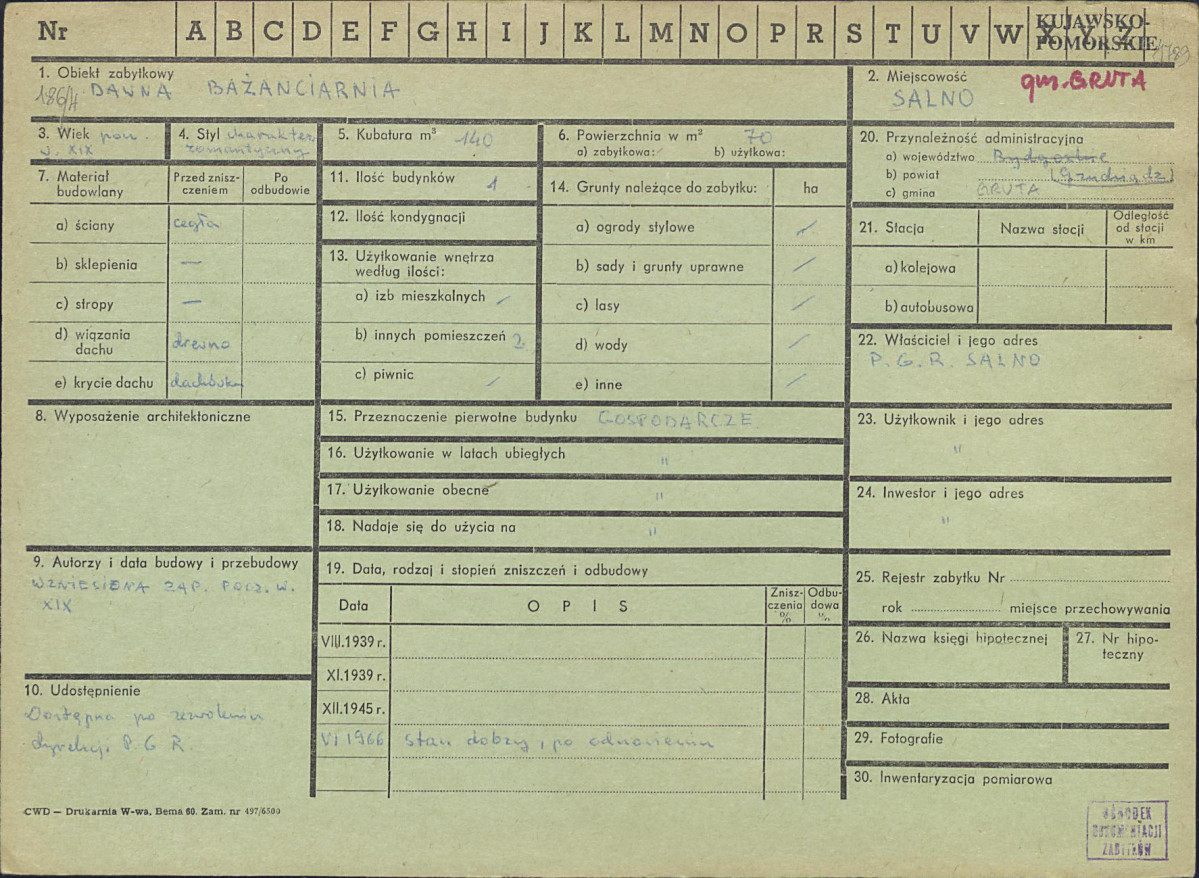 Nr A B C D E F G H I J K L M N O P R S T U V W X Y Z
KUJAWSKO-
POMORSKIE
1. Obiekt zabytkowy
186/4 DAWNA BAŻANCIARNIA
2. Miejscowość gm. GRUTA
SALNO
3. Wiek pocz.
w. XIX
4. Styl charakter
romantyczny
5. Kubatura m³ 140
6. Powierzchnia w m² 70
a) zabytkowa: b) użytkowa:
7. Materiał
budowlany
Przed znisz-
czeniem
Po
odbudowie
a) ściany cegła
b) sklepienia —
c) stropy —
d) wiązania
dachu drewno
e) krycie dachu dachówka
8. Wyposażenie architektoniczne
9. Autorzy i data budowy i przebudowy
WZNIESIONA ZAP. POCZ. W.
XIX
10. Udostępnienie
Dostępna po zezwoleniu
dyrekcji P.G.R.
11. Ilość budynków 1
12. Ilość kondygnacji
13. Użytkowanie wnętrza
według ilości:
a) izb mieszkalnych /
b) innych pomieszczeń 2
c) piwnic /
14. Grunty należące do zabytku: ha
a) ogrody stylowe /
b) sady i grunty uprawne /
c) lasy /
d) wody /
e) inne /
15. Przeznaczenie pierwotne budynku GOSPODARCZE
16. Użytkowanie w latach ubiegłych "
17. Użytkowanie obecne "
18. Nadaje się do użycia na "
19. Data, rodzaj i stopień zniszczeń i odbudowy
Data OPIS
Znisz-
czenia
%
Odbu-
dowa
%
VIII.1939 r.
XI.1939 r.
XII.1945 r.
VI 1966 stan dobry, po odnowieniu
20. Przynależność administracyjna
a) województwo Bydgoskie
b) powiat (Grudziądz)
c) gmina GRUTA
21. Stacja Nazwa stacji
Odległość
od stacji
w km
a) kolejowa
b) autobusowa
22. Właściciel i jego adres
P.G.R. SALNO
23. Użytkownik i jego adres
"
24. Inwestor i jego adres
"
25. Rejestr zabytku Nr
rok miejsce przechowywania
26. Nazwa księgi hipotecznej
27. Nr hipo-
teczny
28. Akta
29. Fotografie
30. Inwentaryzacja pomiarowa
CWD — Drukarnia W-wa, Bema 60. Zam. nr 497/6500
OŚRODEK
DOKUMENTACJI
ZABYTKÓW